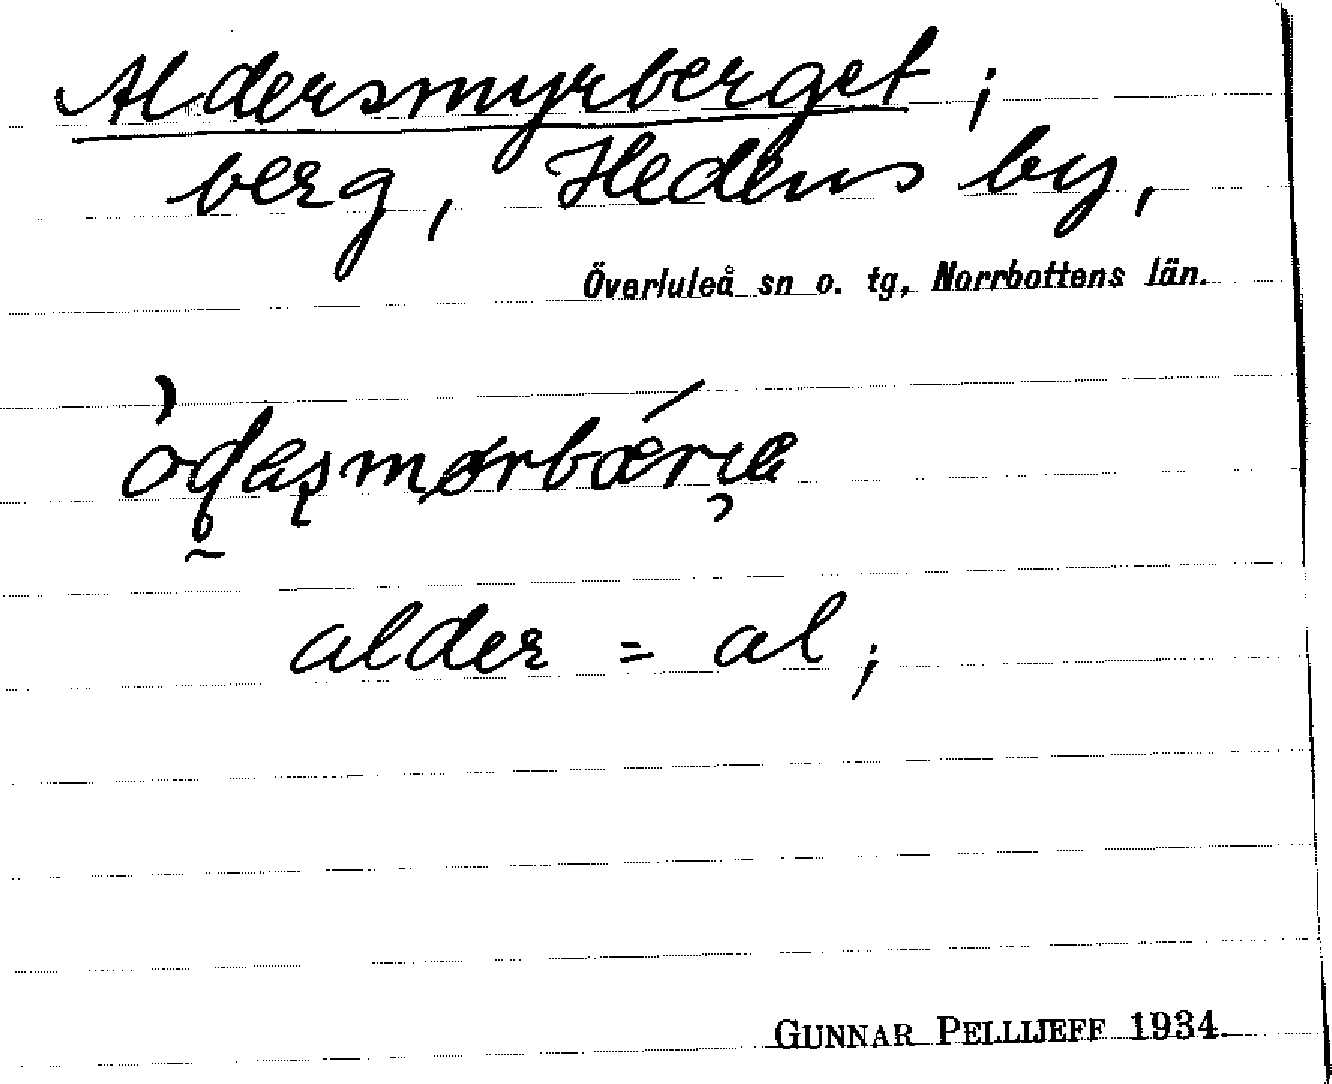 Aldersmyrberget;
berg, Hedens by,
Överluleå sn o. tg, Norrbottens län.
alder = al;
GUNNAR PELLIJEFF 1934.